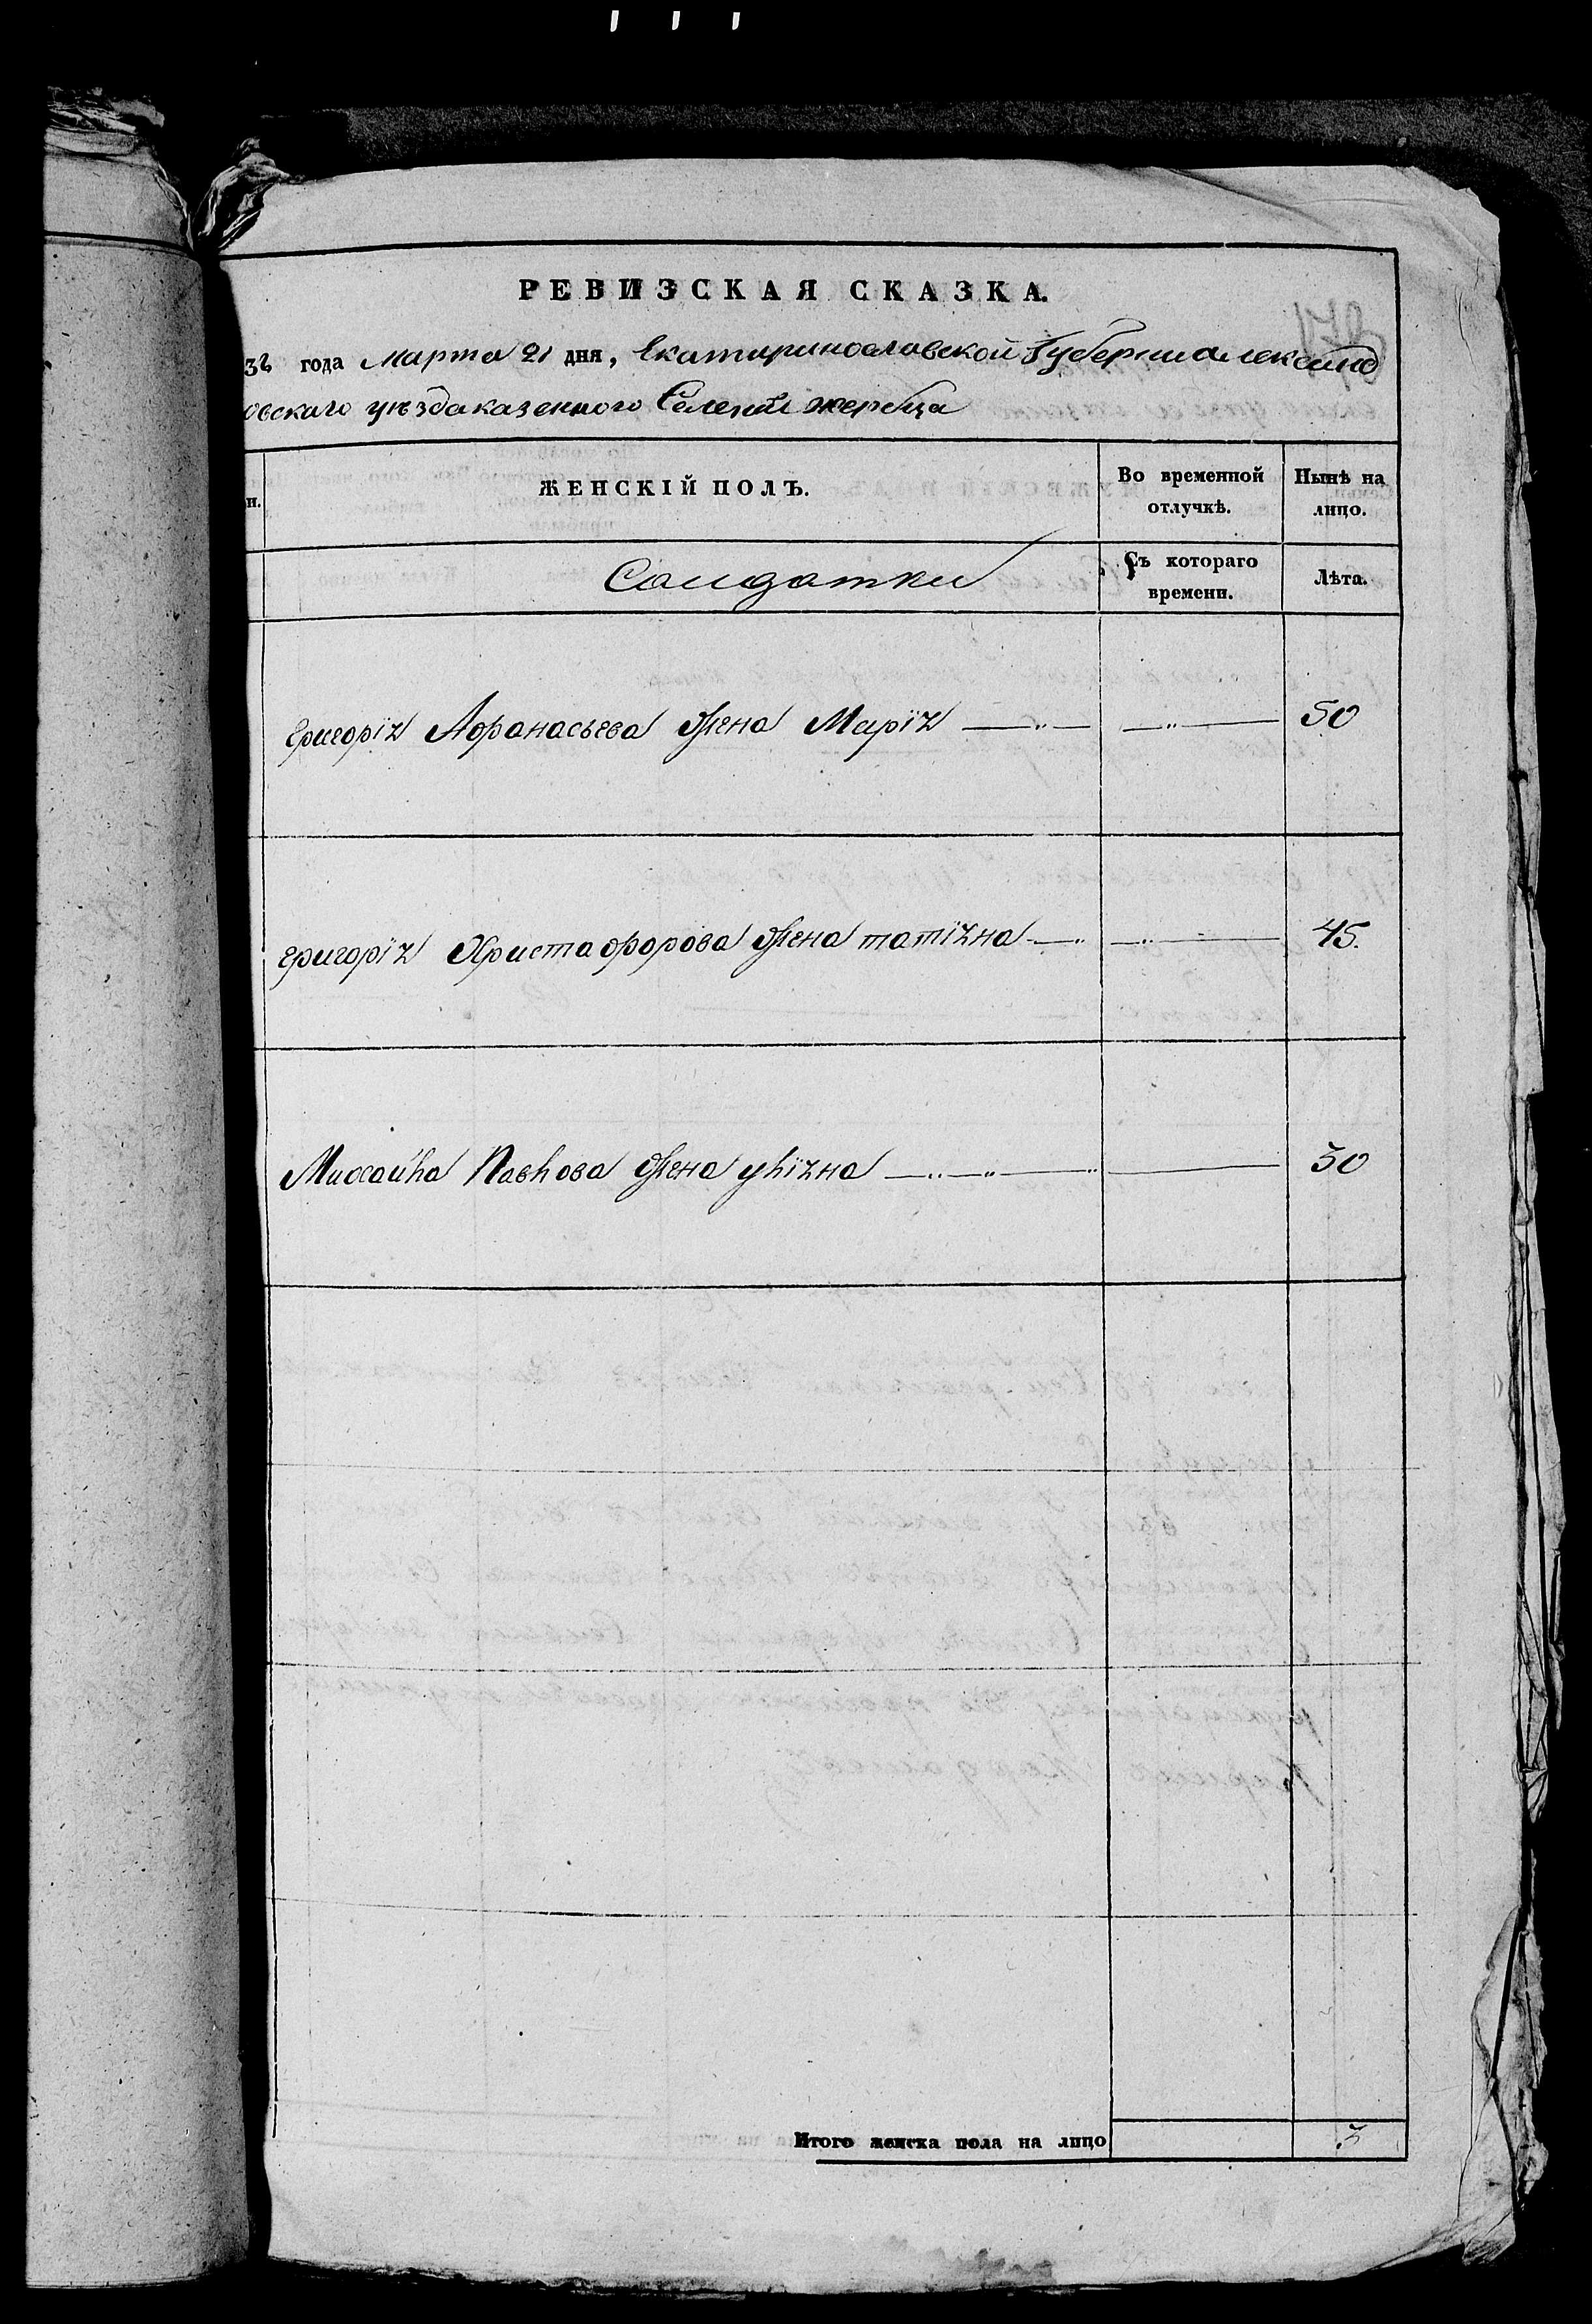 РЕВИЗСКАЯ СКАЗКА.
года Марта 21 дня, Екатиринославской Губернии александ
овскаго уезда казенного Селения жеребца
н.
ЖЕНСКІЙ ПОЛЪ.
Во временной отлучкѣ.
Нынѣ на лицо.
Салдатки
Съ котораго времени.
Лѣта.
Григорія Афанасьева жена Марія — „ — — „ — 50
григорія Христафорова жена татіяна — „ — „ — 45.
Михайла Павлова жена уліяна — „ — „ — „ — 50
Итого женска пола на лицо 3